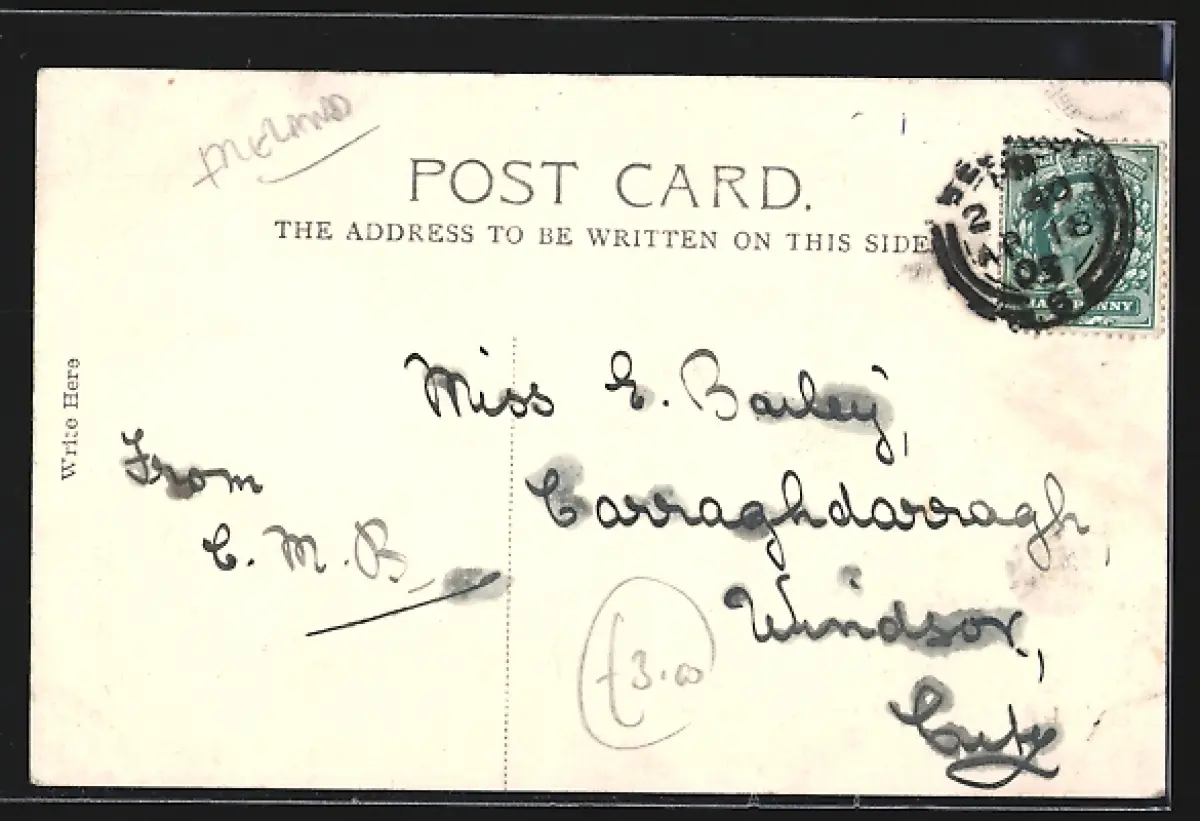 IRELAND
POST CARD.
THE ADDRESS TO BE WRITTEN ON THIS SIDE
2 40 PM
AP 18
05
HALFPENNY
Write Here
Miss E. Bailey,
Carraghdarragh,
Windsor,
City
From
C. M. B.
£3.00